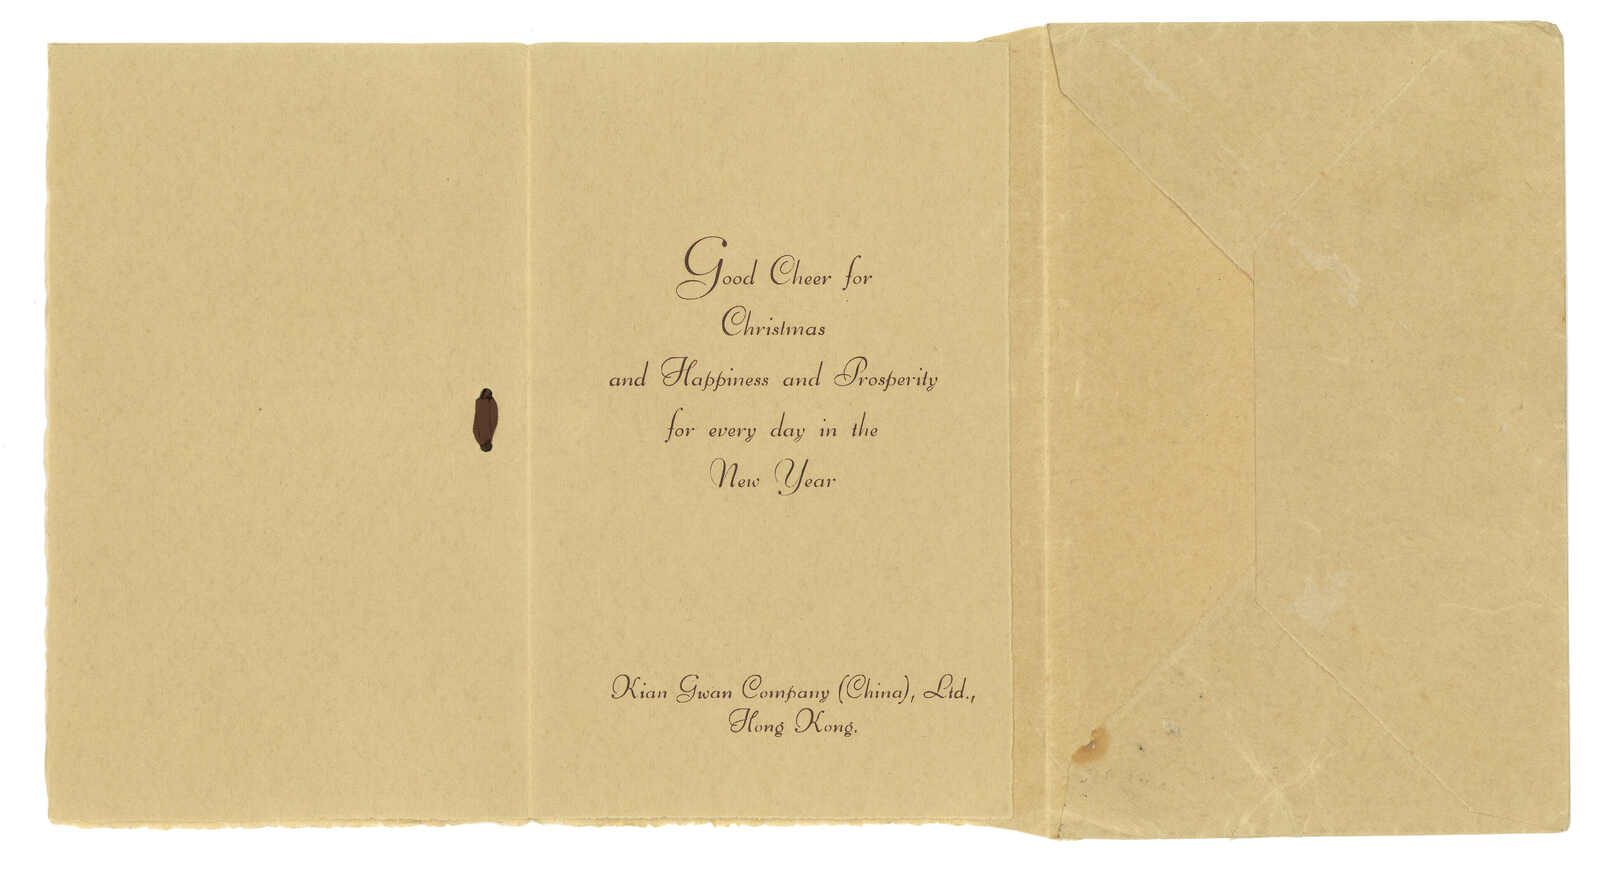 Good Cheer for
Christmas
and Happiness and Prosperity
for every day in the
New Year
Kian Gwan Company (China), Ltd.,
Hong Kong.